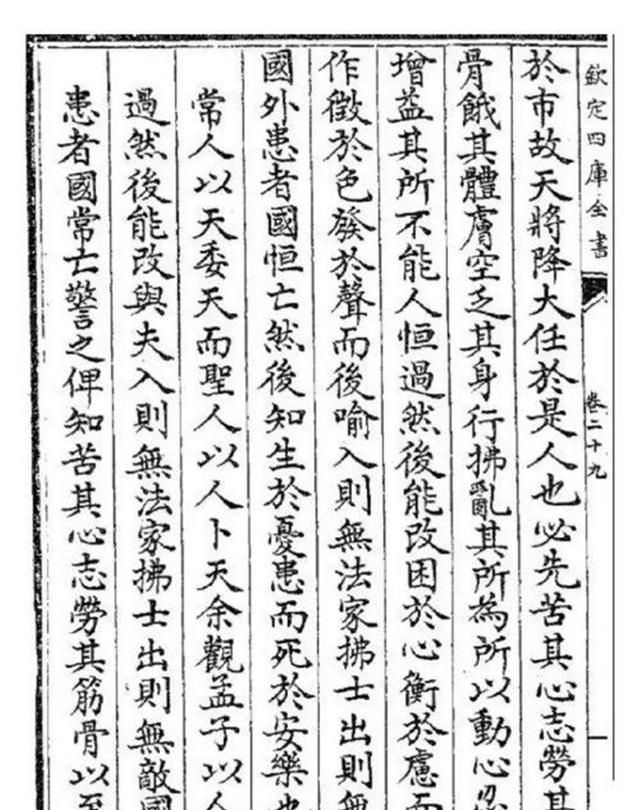 欽定四庫全書
卷二十九
於市故天將降大任於是人也必先苦其心志勞其
骨餓其體膚空乏其身行拂亂其所為所以動心忍
增益其所不能人恒過然後能改困於心衡於慮而
作徵於色發於聲而後喻入則無法家拂士出則無
國外患者國恒亡然後知生於憂患而死於安樂也
常人以天委天而聖人以人卜天余觀孟子以人
過然後能改與夫入則無法家拂士出則無敵國
患者國常亡警之俾知苦其心志勞其筋骨以至